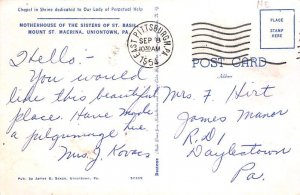 Chapel in Shrine dedicated to Our Lady of Perpetual Help.
MOTHERHOUSE OF THE SISTERS OF ST. BASIL
MOUNT ST. MACRINA, UNIONTOWN, PA.
EAST PITTSBURGH, PA.
SEP 8
1954
PLACE
STAMP
HERE
POST CARD
Address
Hello:-
You would
like this beautiful
place. Have made
a pilgrimage here.
Mrs. J. Kovacs
Mrs F. Hirt
James Manor
R.D.1
Doylestown
Pa.